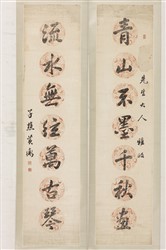 青山不墨千秋畫
先生大人 雅
流水無弦萬古琴